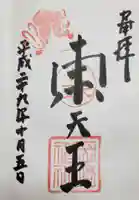 奉拝
東天王
平成二十九年十月五日